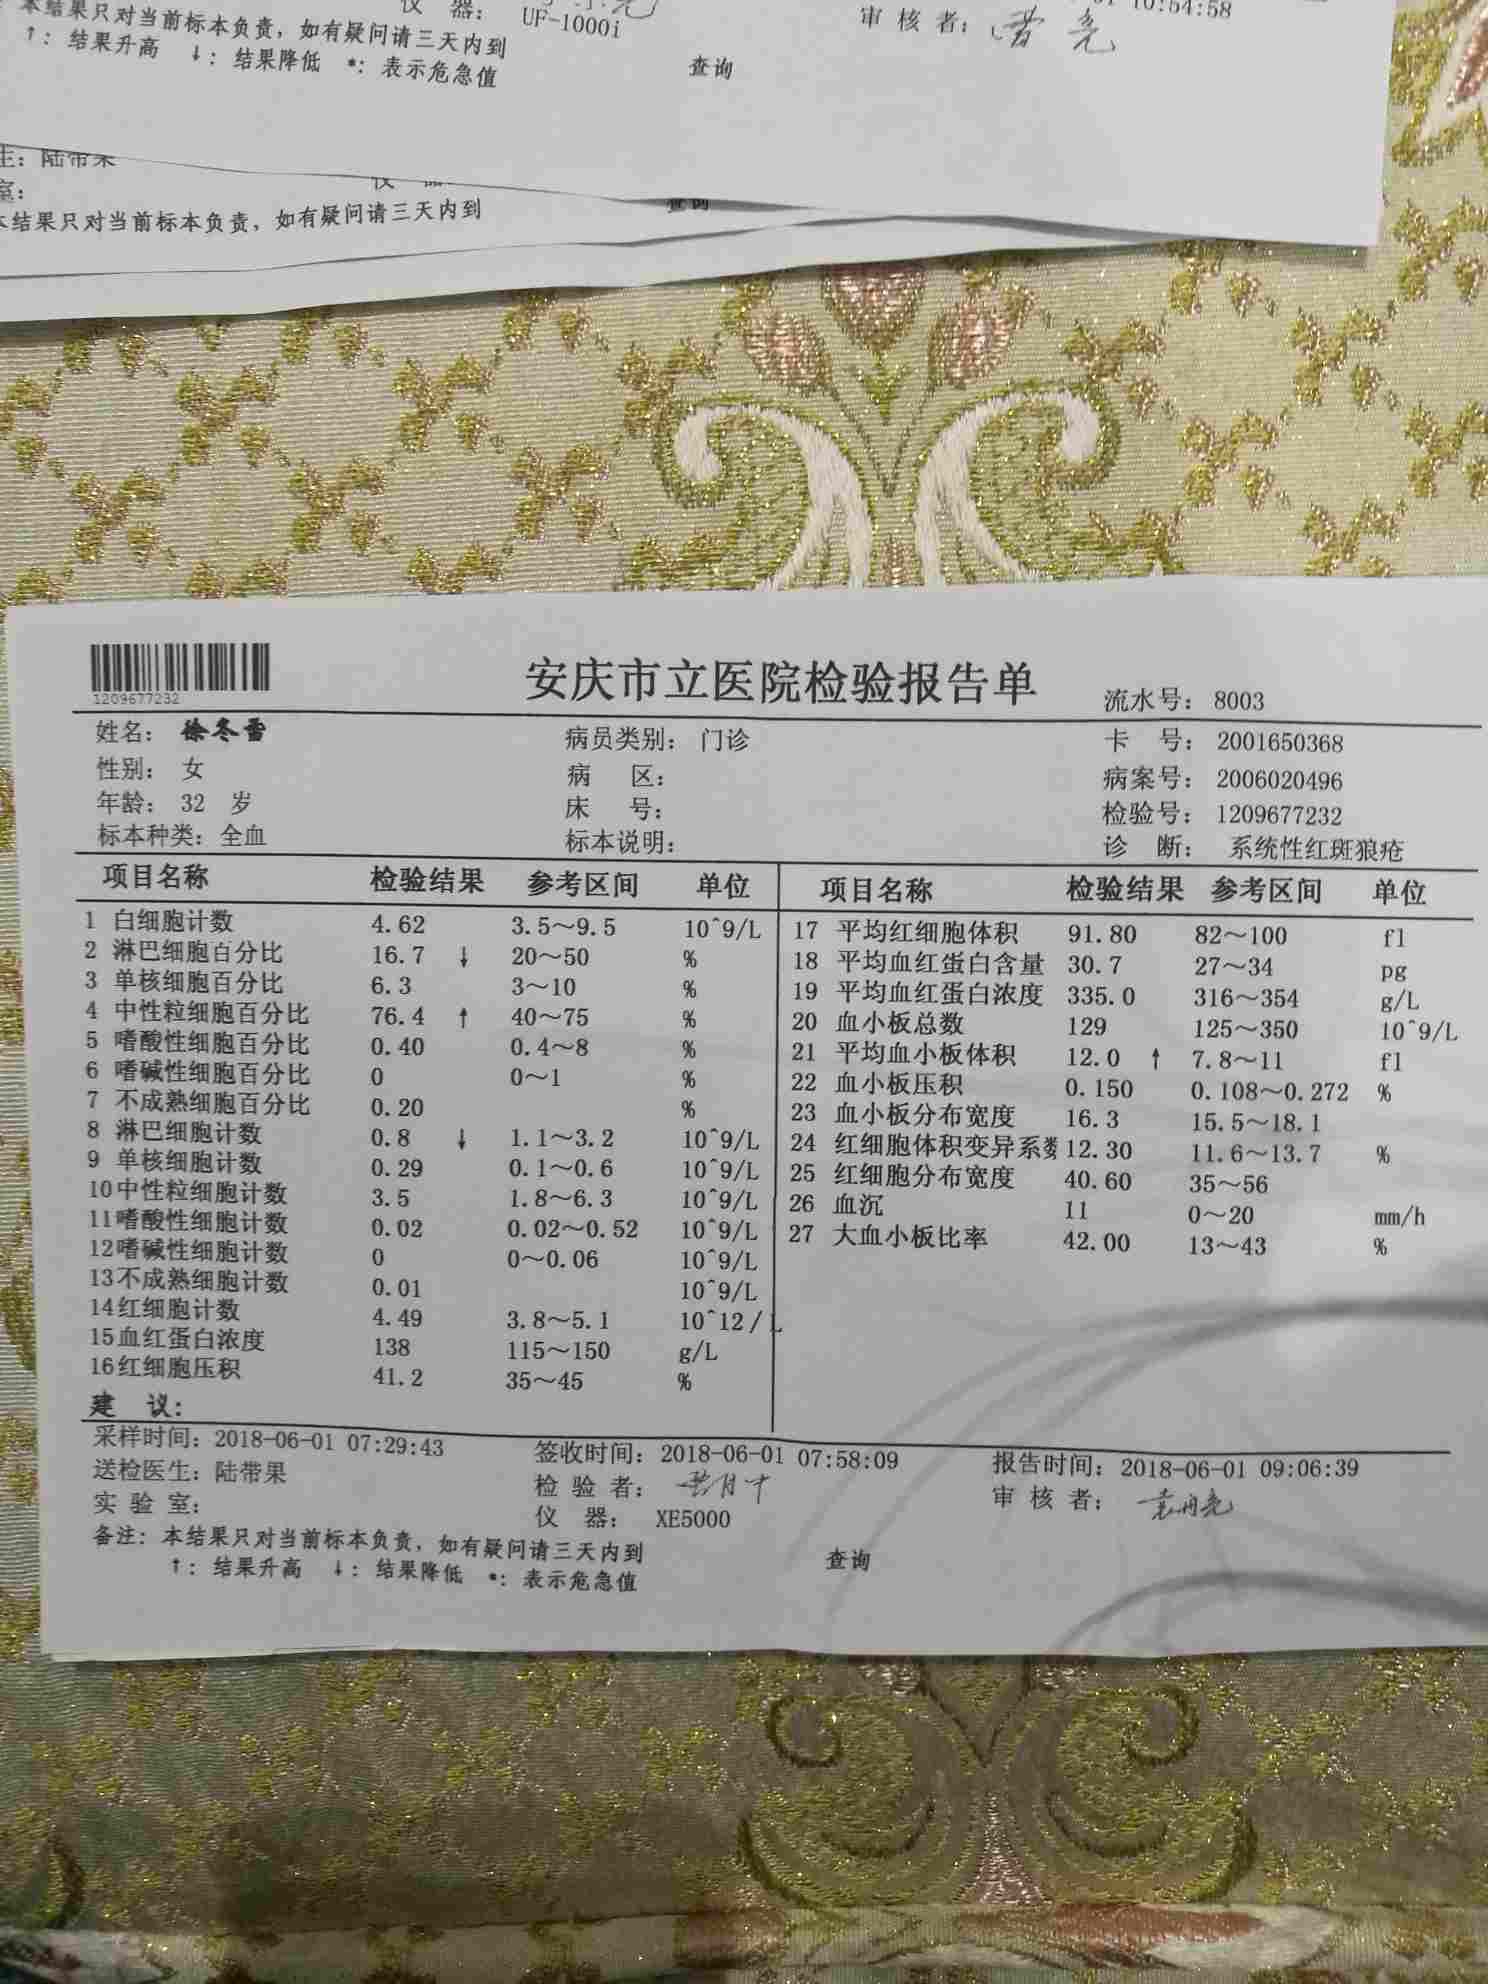 本结果只对当前标本负责，如有疑问请三天内到
仪 器： UF-1000i
审 核 者：
10:54:58
↑：结果升高 ↓：结果降低 *：表示危急值
查询
生：陆带果
室：
本结果只对当前标本负责，如有疑问请三天内到
查询
1209677232
安庆市立医院检验报告单
流水号： 8003
姓名： 徐冬雷 病员类别： 门诊 卡 号： 2001650368
性别： 女 病 区： 病案号： 2006020496
年龄： 32 岁 床 号： 检验号： 1209677232
标本种类：全血 标本说明： 诊 断： 系统性红斑狼疮
项目名称 检验结果 参考区间 单位 项目名称 检验结果 参考区间 单位
1 白细胞计数 4.62 3.5～9.5 10^9/L 17 平均红细胞体积 91.80 82～100 fl
2 淋巴细胞百分比 16.7 ↓ 20～50 % 18 平均血红蛋白含量 30.7 27～34 pg
3 单核细胞百分比 6.3 3～10 % 19 平均血红蛋白浓度 335.0 316～354 g/L
4 中性粒细胞百分比 76.4 ↑ 40～75 % 20 血小板总数 129 125～350 10^9/L
5 嗜酸性细胞百分比 0.40 0.4～8 % 21 平均血小板体积 12.0 ↑ 7.8～11 fl
6 嗜碱性细胞百分比 0 0～1 % 22 血小板压积 0.150 0.108～0.272 %
7 不成熟细胞百分比 0.20 % 23 血小板分布宽度 16.3 15.5～18.1
8 淋巴细胞计数 0.8 ↓ 1.1～3.2 10^9/L 24 红细胞体积变异系数 12.30 11.6～13.7 %
9 单核细胞计数 0.29 0.1～0.6 10^9/L 25 红细胞分布宽度 40.60 35～56
10 中性粒细胞计数 3.5 1.8～6.3 10^9/L 26 血沉 11 0～20 mm/h
11 嗜酸性细胞计数 0.02 0.02～0.52 10^9/L 27 大血小板比率 42.00 13～43 %
12 嗜碱性细胞计数 0 0～0.06 10^9/L
13 不成熟细胞计数 0.01 10^9/L
14 红细胞计数 4.49 3.8～5.1 10^12/L
15 血红蛋白浓度 138 115～150 g/L
16 红细胞压积 41.2 35～45 %
建 议：
采样时间：2018-06-01 07:29:43 签收时间：2018-06-01 07:58:09 报告时间：2018-06-01 09:06:39
送检医生：陆带果 检 验 者： 审 核 者：
实 验 室： 仪 器： XE5000
备注：本结果只对当前标本负责，如有疑问请三天内到 查询
↑：结果升高 ↓：结果降低 *：表示危急值